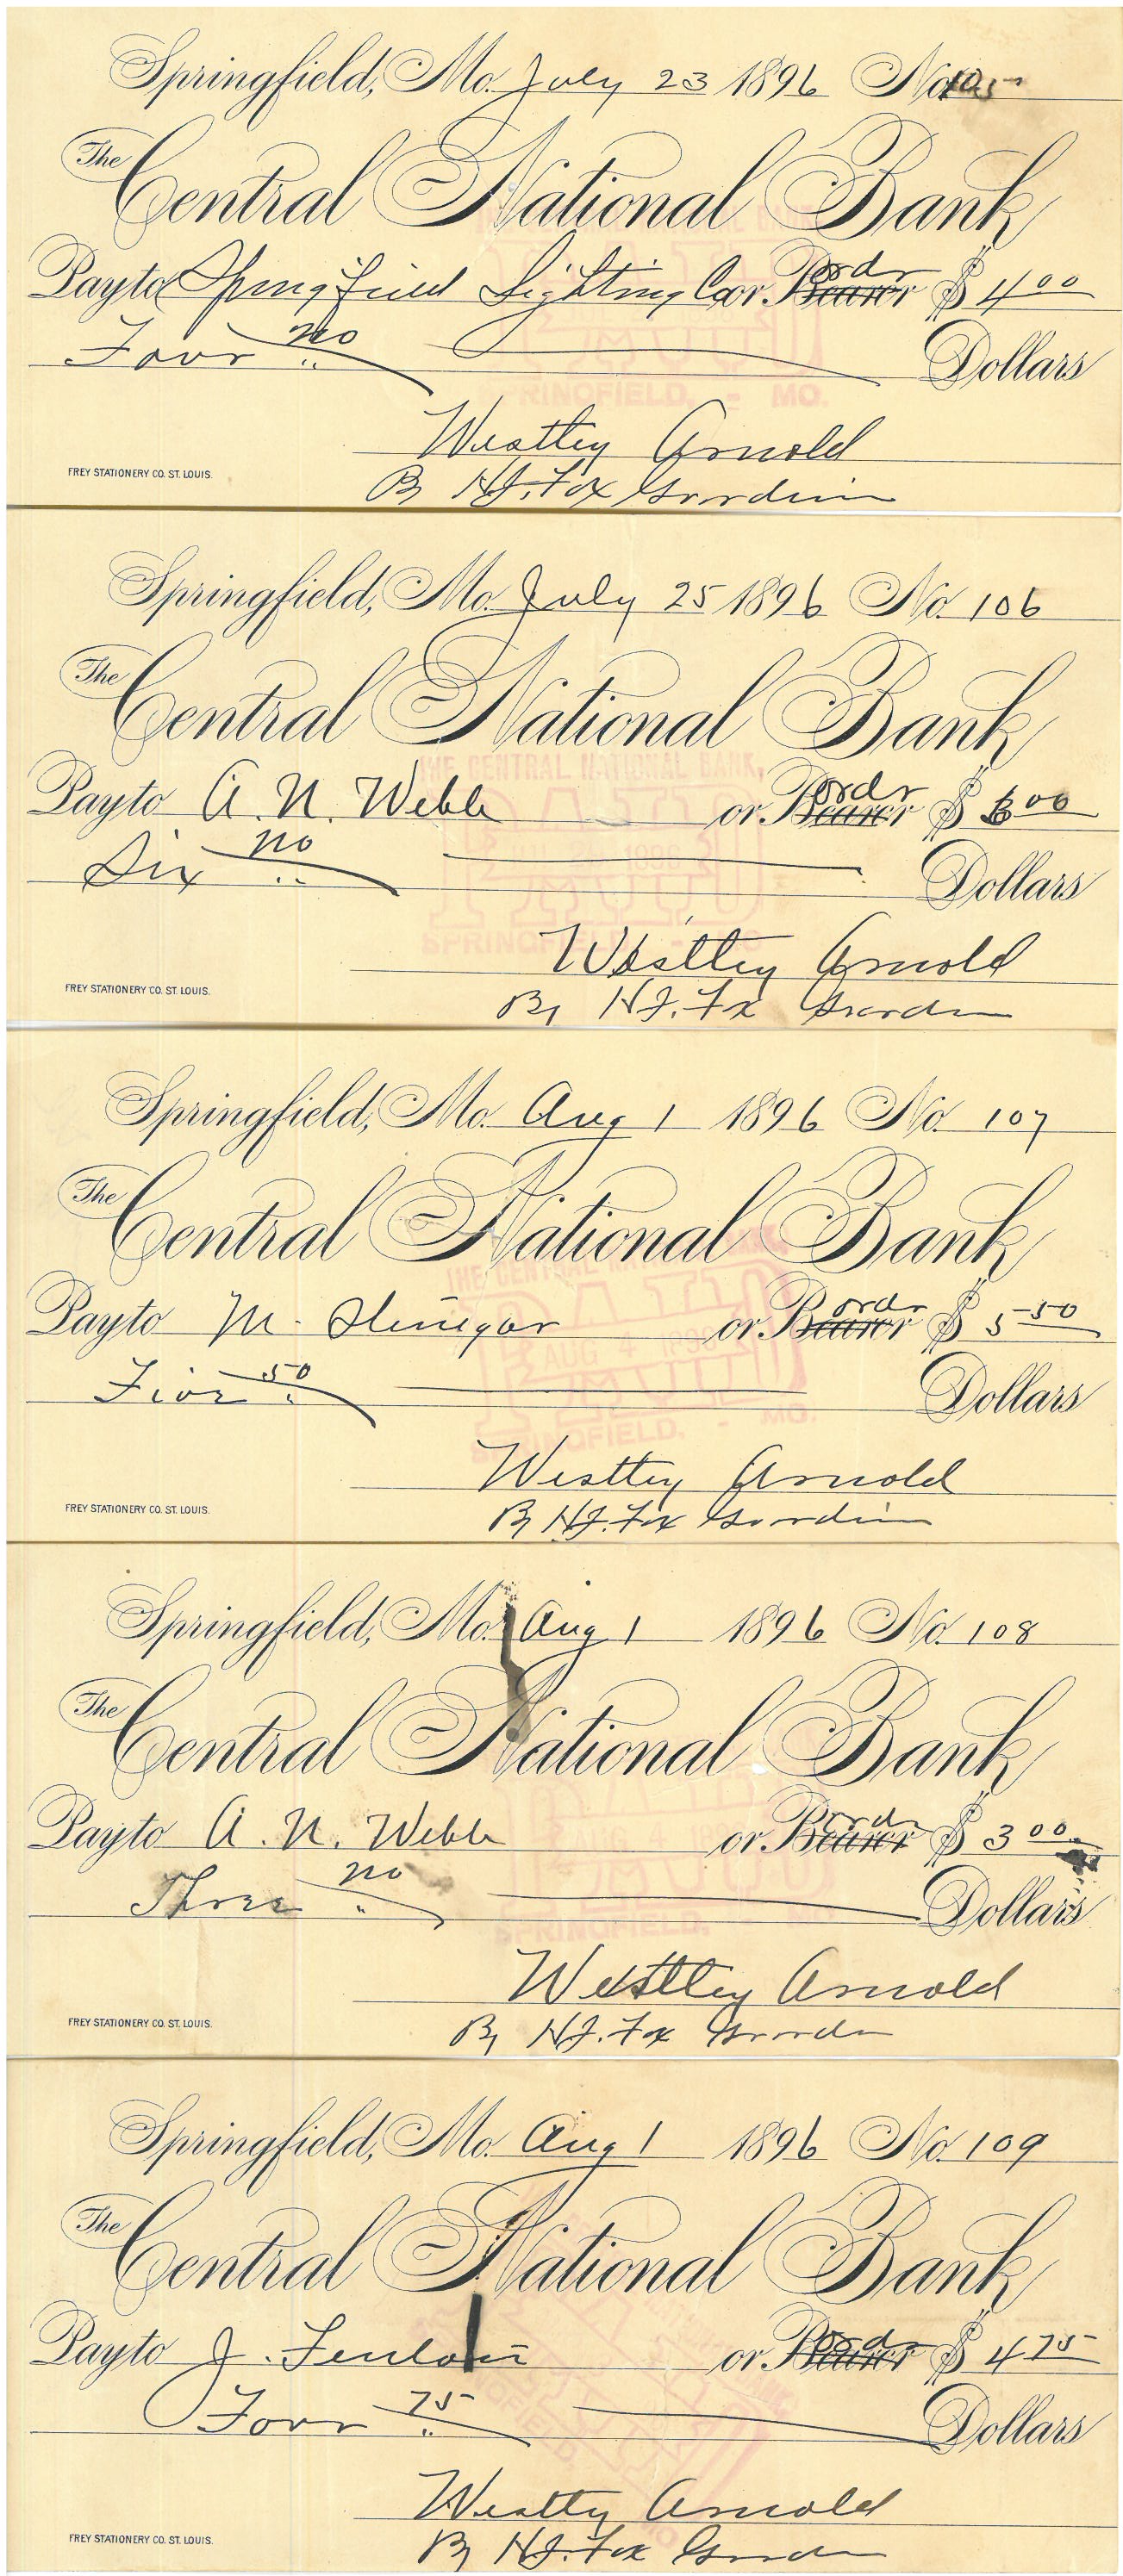 Springfield, Mo. July 23 1896 No. 105
The Central National Bank
Pay to Springfield Lighting Co or Bearer ordr $ 4 00
Four no Dollars
Westley Arnold
FREY STATIONERY CO. ST. LOUIS.
By H.J. Fox
SPRINGFIELD, - MO.
Springfield, Mo. July 25 1896 No. 106
The Central National Bank
THE CENTRAL NATIONAL BANK,
Pay to A. N. Webb or Bearer ordr $ 6 00
Six no Dollars
PAID
SPRINGFIELD, - MO.
Westley Arnold
FREY STATIONERY CO. ST. LOUIS.
By H.J. Fx
Springfield, Mo. Aug 1 1896 No. 107
The Central National Bank
THE CENTRAL NATIONAL BANK
Pay to M. or Bearer ordr $ 5 50
PAID
AUG 4 1896
Five 50 Dollars
SPRINGFIELD, - MO.
Westley Arnold
FREY STATIONERY CO. ST. LOUIS.
By H.J. Fox
Springfield, Mo. Aug 1 1896 No. 108
The Central National Bank
Pay to A. N. Webb or Bearer ordr $ 3 00
Three no Dollars
SPRINGFIELD,
Westley Arnold
FREY STATIONERY CO. ST. LOUIS.
By H.J. Fox
Springfield, Mo. Aug 1 1896 No. 109
The Central National Bank
Pay to J. or Bearer ordr $ 4 75
Four 75 Dollars
Westley Arnold
FREY STATIONERY CO. ST. LOUIS.
By H.J. Fox